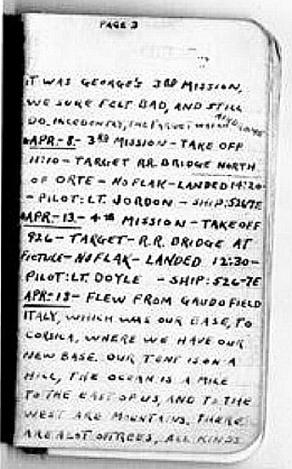 PAGE 3
IT WAS GEORGE'S 3RD MISSION,
WE SURE FELT BAD, AND STILL
DO. INCEDENTLY, THE TARGET WHICH
APR-8- 3RD MISSION - TAKE OFF
11:10 - TARGET R.R. BRIDGE NORTH
OF ORTE - NO FLAK - LANDED 14:20-
- PILOT: LT. JORDON - SHIP: 526-7E
APR-13- 4TH MISSION - TAKEOFF
926 - TARGET - R.R. BRIDGE AT
FICTULE - NO FLAK - LANDED 12:30-
PILOT: LT. DOYLE - SHIP: 526-7E
APR-18- FLEW FROM GAUDO FIELD
ITALY, WHICH WAS OUR BASE, TO
CORSICA, WHERE WE HAVE OUR
NEW BASE. OUR TENT IS ON A
HILL, THE OCEAN IS A MILE
TO THE EAST OF US, AND TO THE
WEST ARE MOUNTAINS. THERE
ARE A LOT OF TREES, ALL KINDS